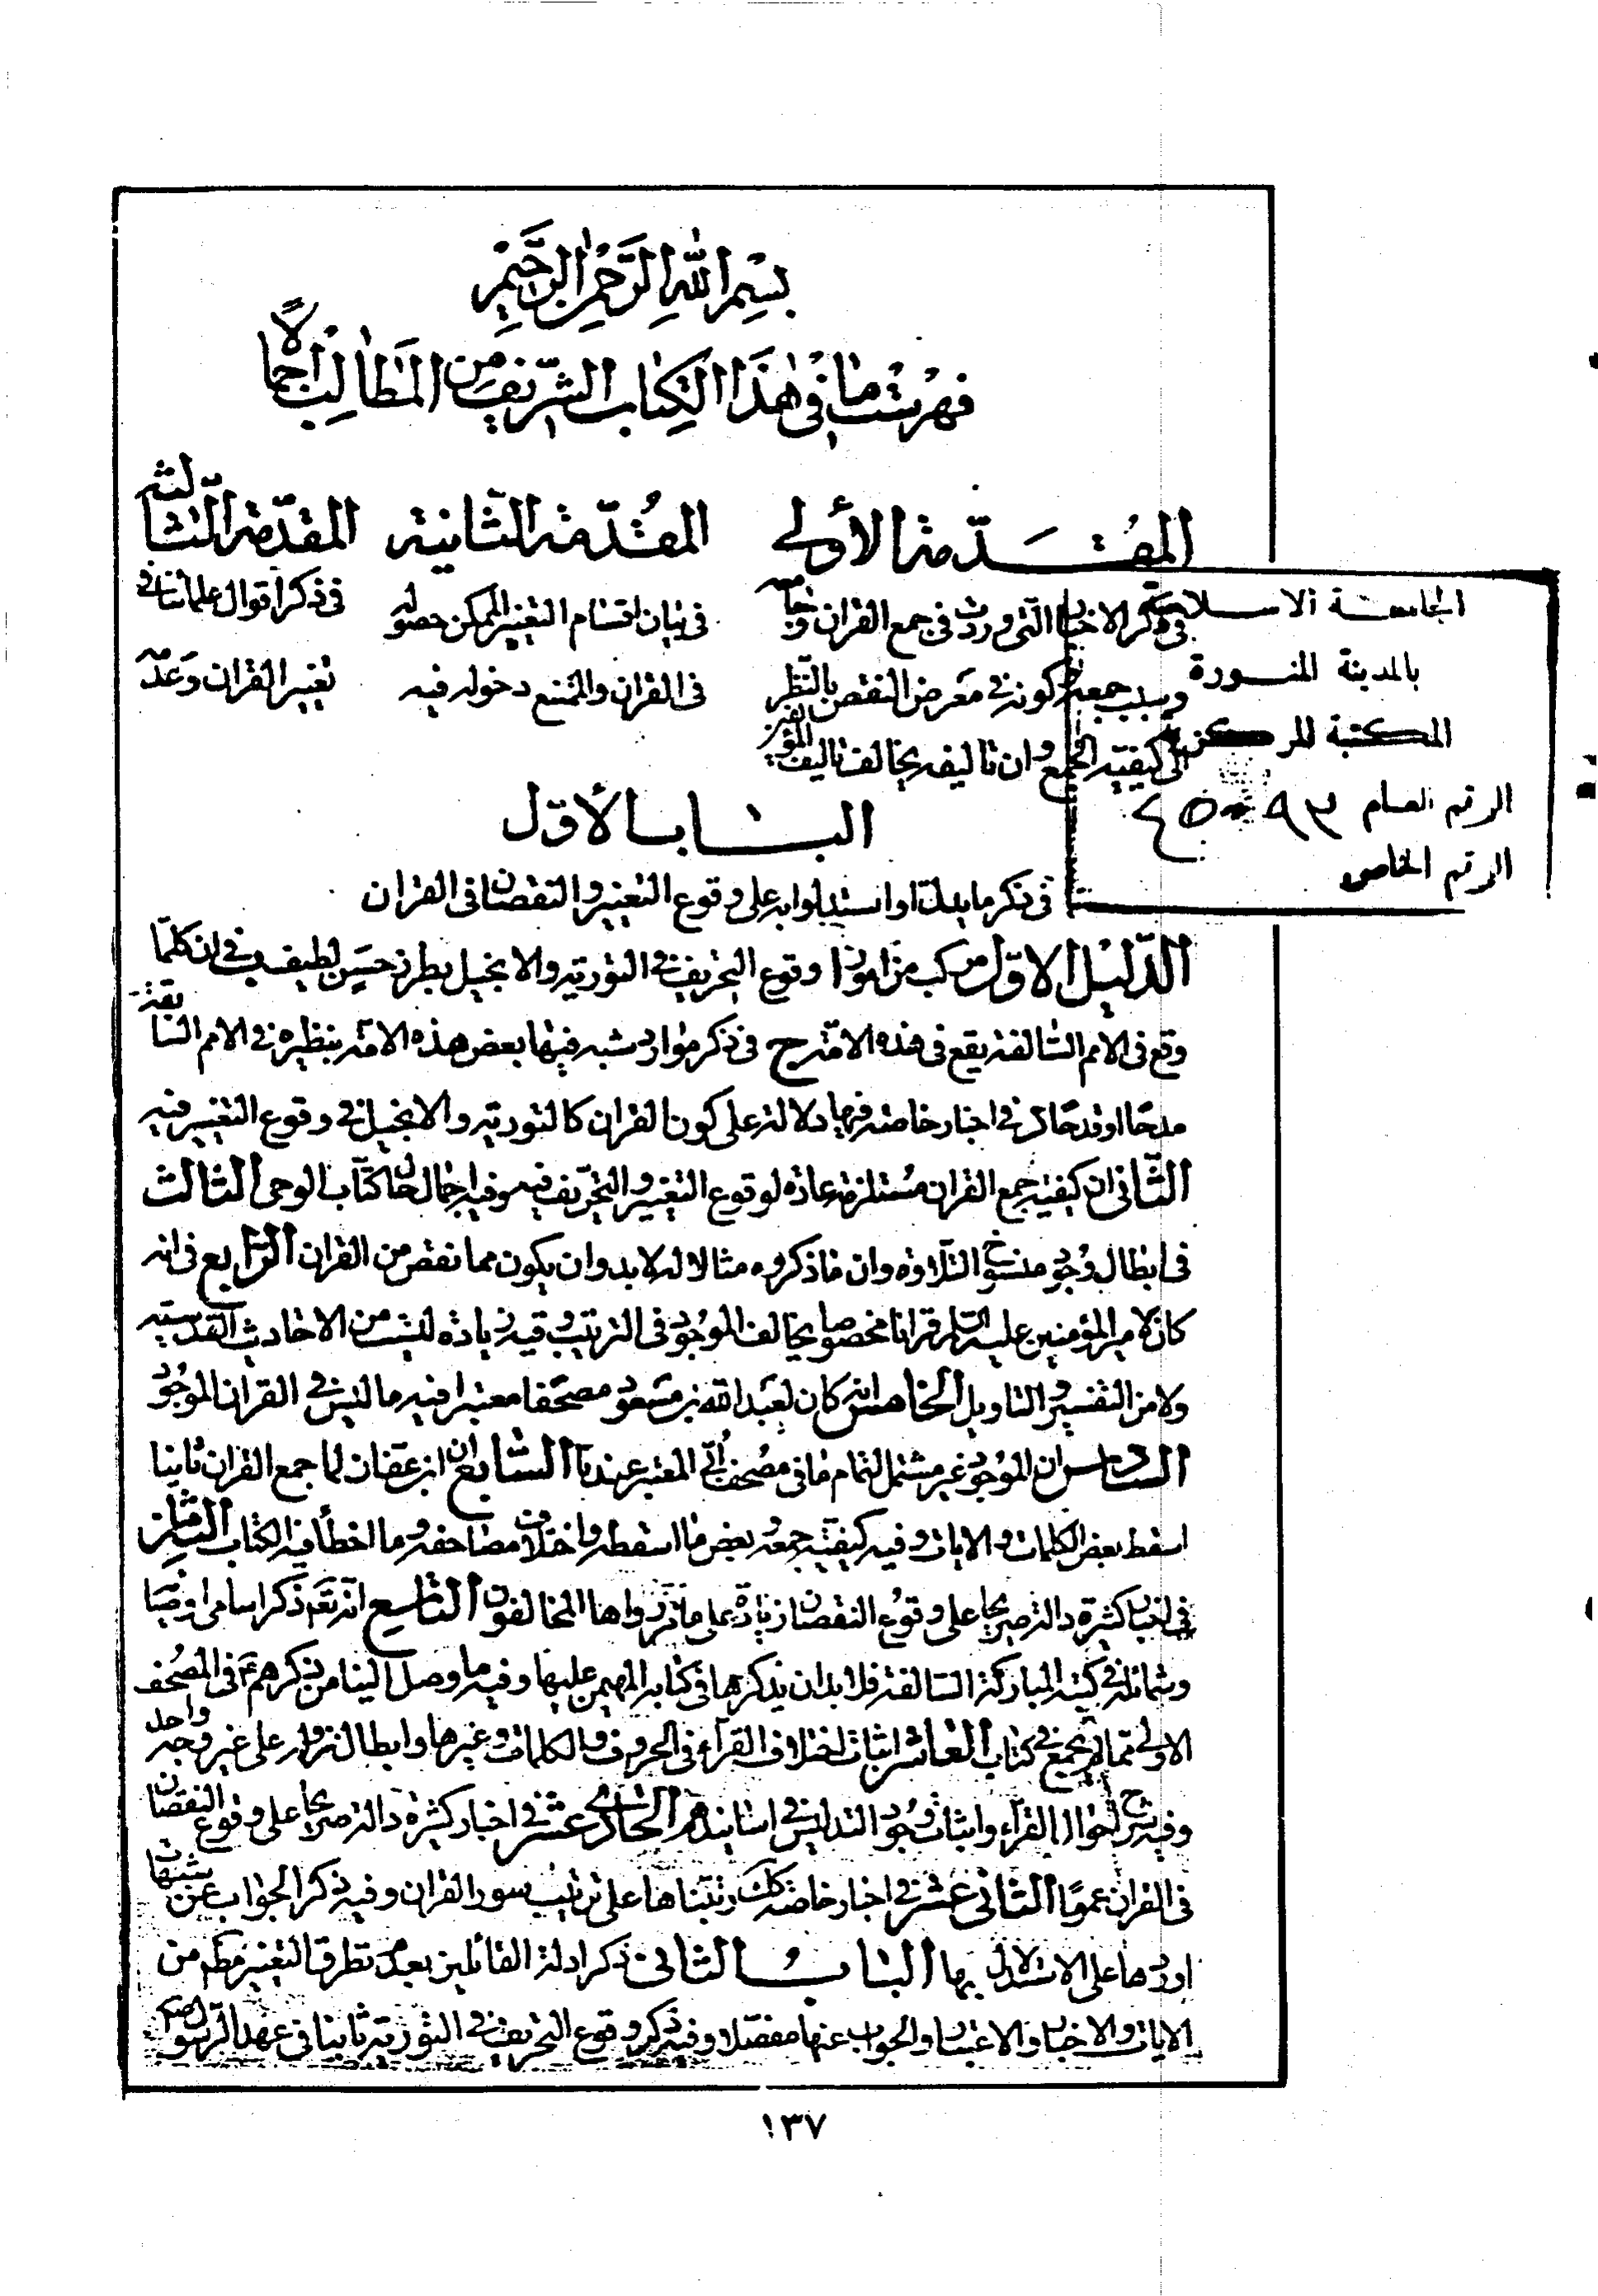 بِسْمِ اللهِ الرَّحْمٰنِ الرَّحِيْمِ
فهرست ما في هذا الكتاب الشريف من المطالب اجمالاً
المقدمة الأولى
في ذكر الاخبار التي وردت في جمع القران وجامعه
وسبب جمعه وكونه في معرض النقص بالنظر
الى كيفية الجمع وان تاليفه يخالف تاليف المؤلفين
المقدمة الثانية
في بيان اقسام التغيير الممكن حصوله
في القران والممتنع دخوله فيه
المقدمة الثالثة
في ذكر اقوال علمائنا في
تغيير القران وعدمه
الجامعة الاسلامية
بالمدينة المنورة
المكتبة المركزية
الرقم العام
الرقم الخاص
الباب الأول
في ذكر ما يدل او استدلوا به على وقوع التغيير والنقصان في القران
الدليل الاول مركب من امور ا وقوع التحريف في التورية والانجيل بطرز حسن لطيف ب في ان كلما
وقع في الامم السالفة يقع في هذه الامة ج في ذكر موارد شبه فيها بعض هذه الامة بنظيره في الامم السابقة
مدحا او قدحا د في اخبار خاصة فيها دلالة على كون القران كالتورية والانجيل في وقوع التغيير فيه
الثاني ان كيفية جمع القران مستلزمة عادة لوقوع التغيير والتحريف فيه وفيه اجمال حال كتاب الوحى الثالث
في ابطال وجود منسوخ التلاوة وان ما ذكروه مثالا له لا بد وان يكون مما نقص من القران الرابع في انه
كان لامير المؤمنين عليه السلم قرانا مخصوصا يخالف الموجود في الترتيب وفيه زيادة ليست من الاحاديث القدسية
ولا من التفسير والتاويل الخامس انه كان لعبد الله بن مسعود مصحفا معتبرا فيه ما ليس في القران الموجود
السادس ان الموجود غير مشتمل لتمام ما في مصحف ابى المعتبر عندنا السابع ان ابن عفان لما جمع القران ثانيا
اسقط بعض الكلمات والايات وفيه كيفية جمعه وبعض ما اسقطه واختلاف مصاحفه وما اخطأ فيه الكتاب الثامن
في اخبار كثيرة دالة صريحا على وقوع النقصان زيادة على ما مر رواها المخالفون التاسع انه تعم ذكر اسامى اوصيا
وشمائله في كتبه المباركة السالفة فلا بد ان يذكرها في كتابه المهيمن عليها وفيه ما وصل الينا من ذكرهم ع في المصحف
الاولى مما لم يجمع في كتاب العاشر اثبات اختلاف القراء في الحروف والكلمات وغيرها وابطال نزوله على غير وجه واحد
وفيه شرح احوال القراء واثبات وجود التدليس في اسانيدهم الحادى عشر في اخبار كثيرة دالة صريحا على وقوع النقصان
في القران عموما الثاني عشر في اخبار خاصة كك رتبناها على ترتيب سور القران وفيه ذكر الجواب عن شبهات
اوردها على الاستدلال بها الباب الثاني في ذكر ادلة القائلين بعدم تطرق التغيير مطم من
الايات والاخبار والاعتبار والجواب عنها مفصلا وفيه ذكر وقوع التحريف في التورية ثانيا في عهد الرسول
١٣٧